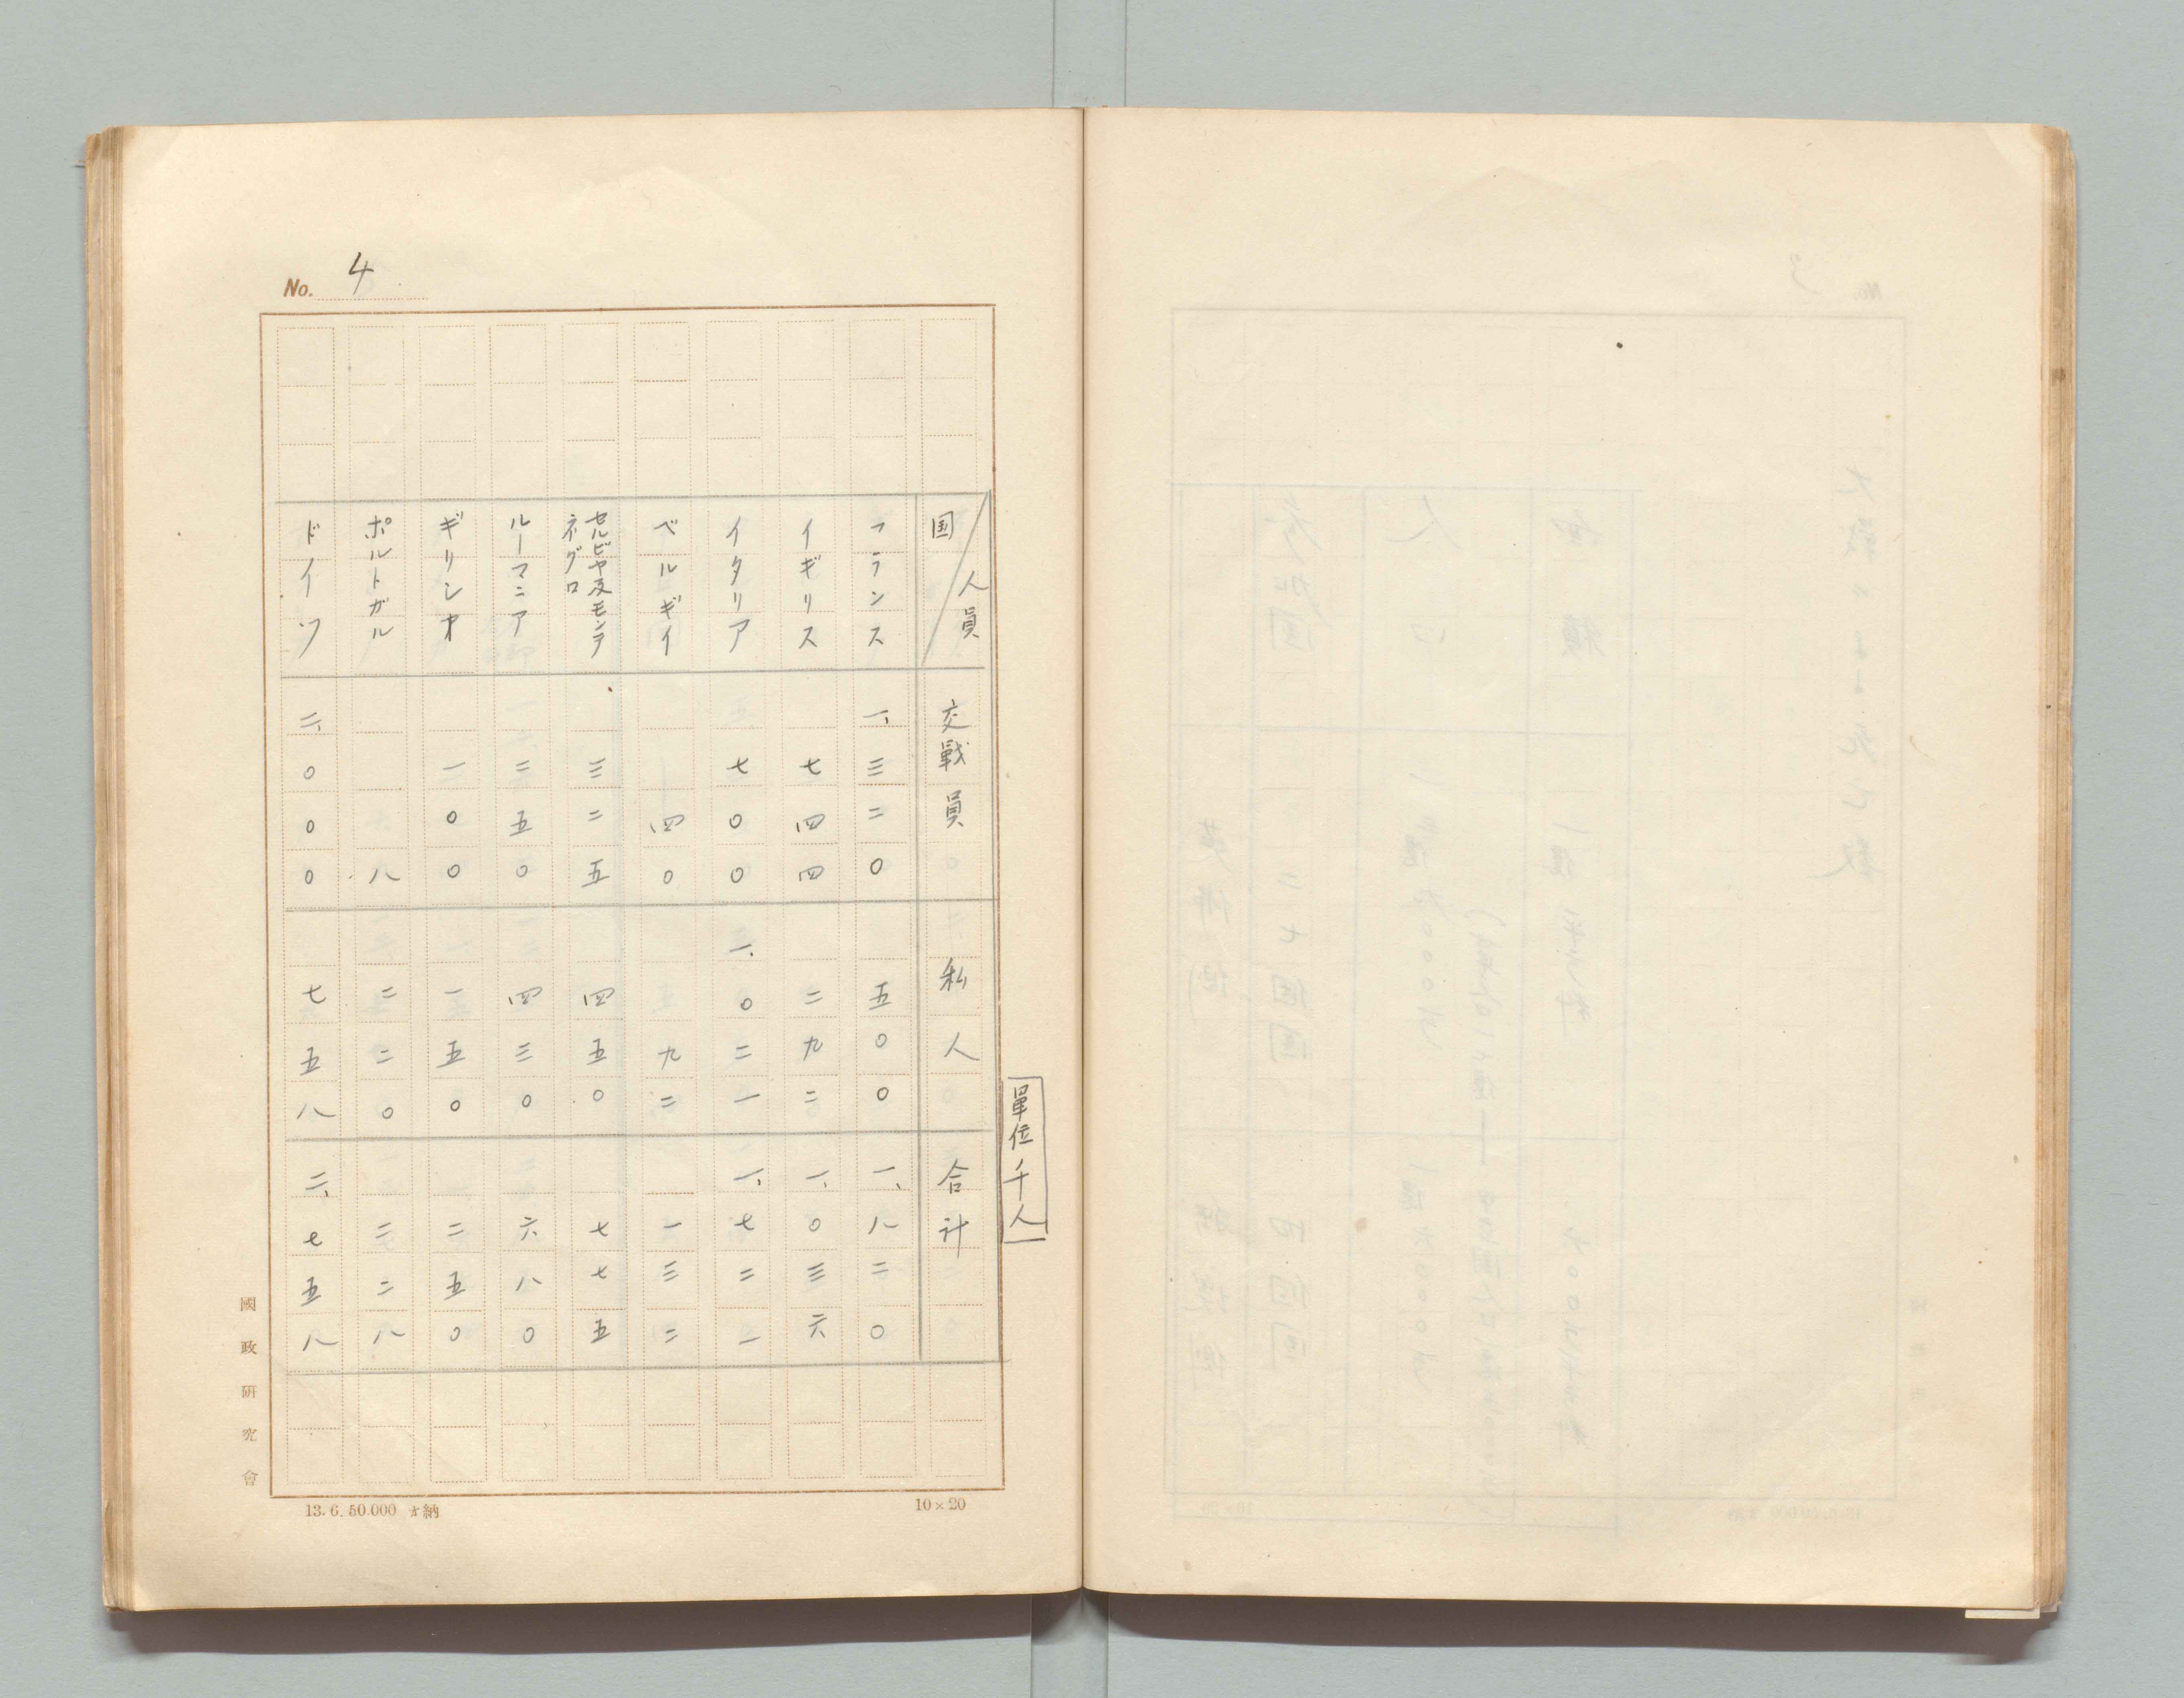 No. 4
單位千人
国 人員 交戰員 私人 合計
フランス 一、三二〇 五〇〇 一、八二〇
イギリス 七四四 二九二 一、〇三六
イタリア 七〇〇 一、〇二一 一、七二一
ベルギイ 四〇 九二 一三二
セルビヤ及モンテ
ネグロ 三二五 四五〇 七七五
ルーマニア 二五〇 四三〇 六八〇
ギリシヤ 一〇〇 一五〇 二五〇
ポルトガル 八 二二〇 二二八
ドイツ 二、〇〇〇 七五八 二、七五八
國政研究會
13.6.50.000 納
10×20